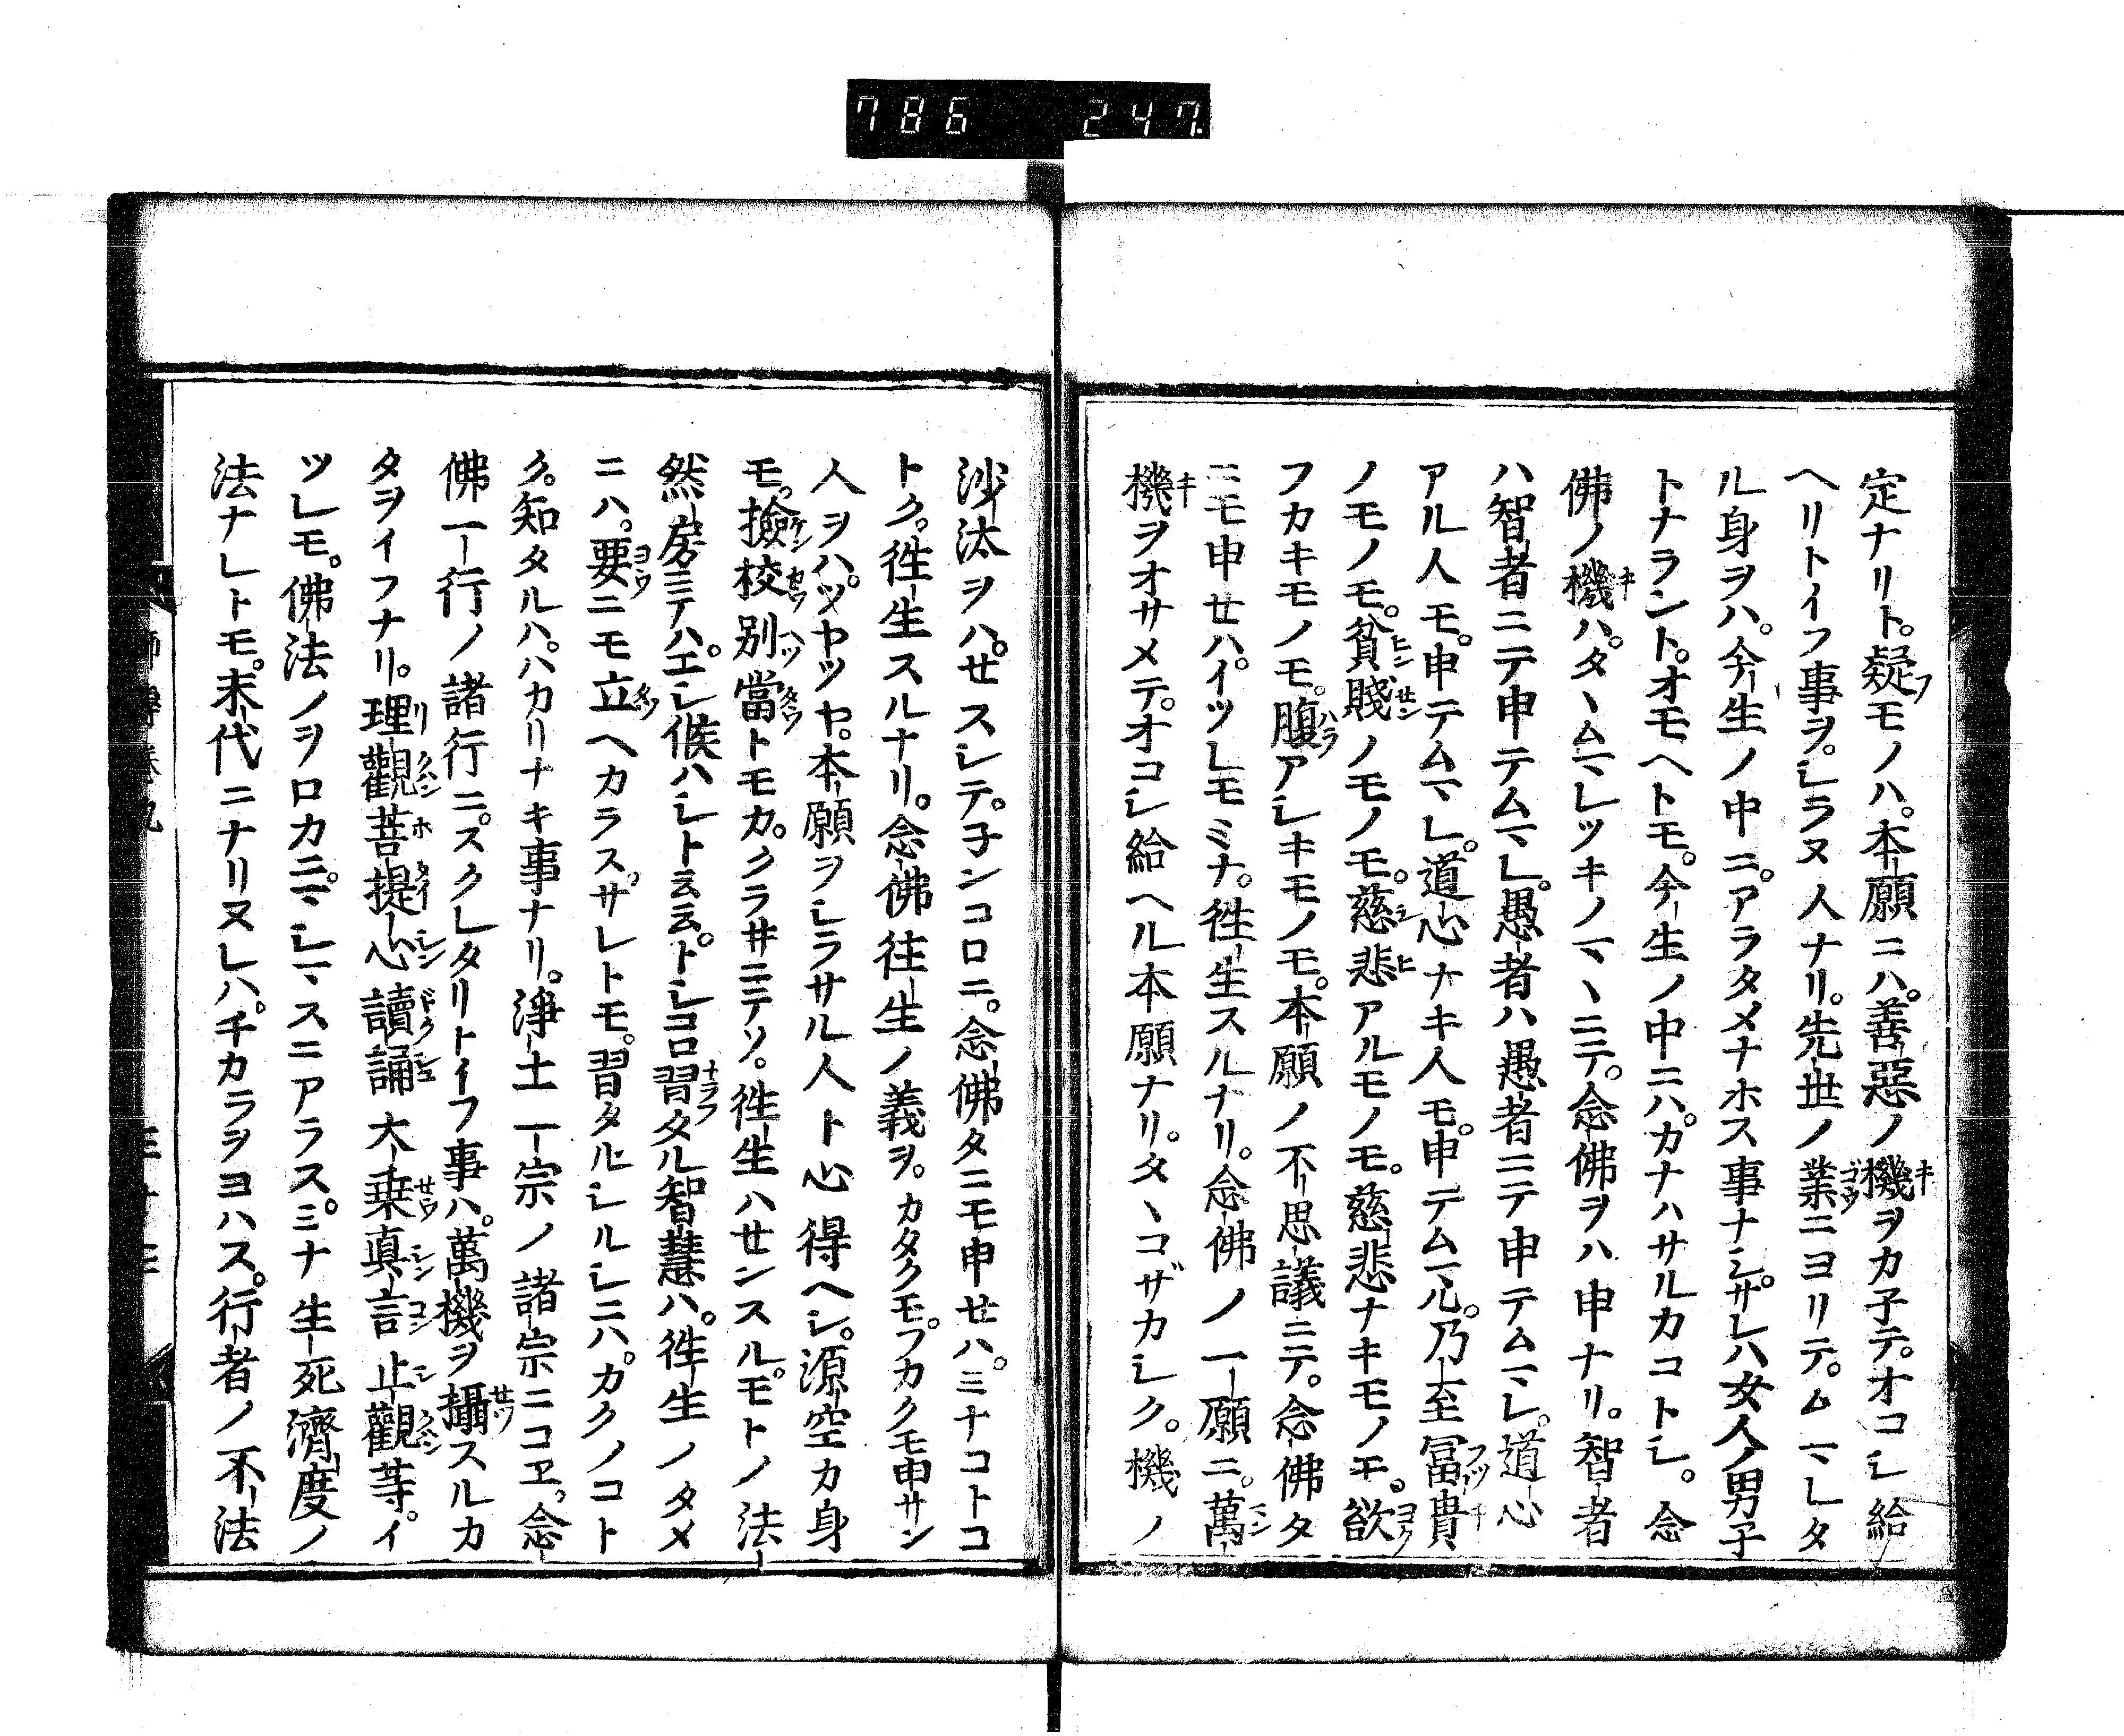 786 247
定ナリト。疑モノハ。本願ニハ。善惡ノ機ヲカ子テ。オコシ給
ヘリトイフ事ヲ。シラヌ人ナリ。先世ノ業ニヨリテ。ムマレタ
ル身ヲハ。今生ノ中ニ。アラタメナホス事ナシ。サレハ女人ノ男子
トナラント。オモヘトモ。今生ノ中ニハ。カナハサルカコトシ。念
佛ノ機ハ。タヽムマレツキノマヽニテ。念佛ヲハ申ナリ。智者
ハ智者ニテ申テムマレ。愚者ハ愚者ニテ申テムマレ。道心
アル人モ。申テムマレ。道心ナキ人モ。申テムマル。乃至冨貴
ノモノモ。貧賤ノモノモ。慈悲アルモノモ。慈悲ナキモノモ。欲
フカキモノモ。腹アシキモノモ。本願ノ不思議ニテ。念佛タ
ニモ申セハ。イツレモミナ。徃生スルナリ。念佛ノ一願ニ。萬
機ヲオサメテ。オコシ給ヘル本願ナリ。タヽコザカシク。機ノ
沙汰ヲハ。セスシテ。子ンコロニ。念佛タニモ申セハ。ミナコトコ
トク。徃生スルナリ。念佛往生ノ義ヲ。カタクモ。フカクモ申サン
人ヲハ。ツヤツヤ。本願ヲシラサル人ト心得ヘシ。源空カ身
モ。撿校別當トモカ。クラ井ニテソ。徃生ハセンスル。モトノ法
然房ニテハ。エシ候ハシト云云。トシコロ習タル智慧ハ。徃生ノタメ
ニハ。要ニモ立ヘカラス。サレトモ。習タルシルシニハ。カクノコト
ク。知タルハ。ハカリナキ事ナリ。淨土一宗ノ諸宗ニコエ。念
佛一行ノ諸行ニ。スクレタリトイフ事ハ。萬機ヲ攝スルカ
タヲイフナリ。理觀菩提心讀誦大乗眞言止觀等。イ
ツレモ。佛法ノヲロカニ。マシマスニアラス。ミナ生死濟度ノ
法ナレトモ。末代ニナリヌレハ。チカラヲヨハス。行者ノ不法